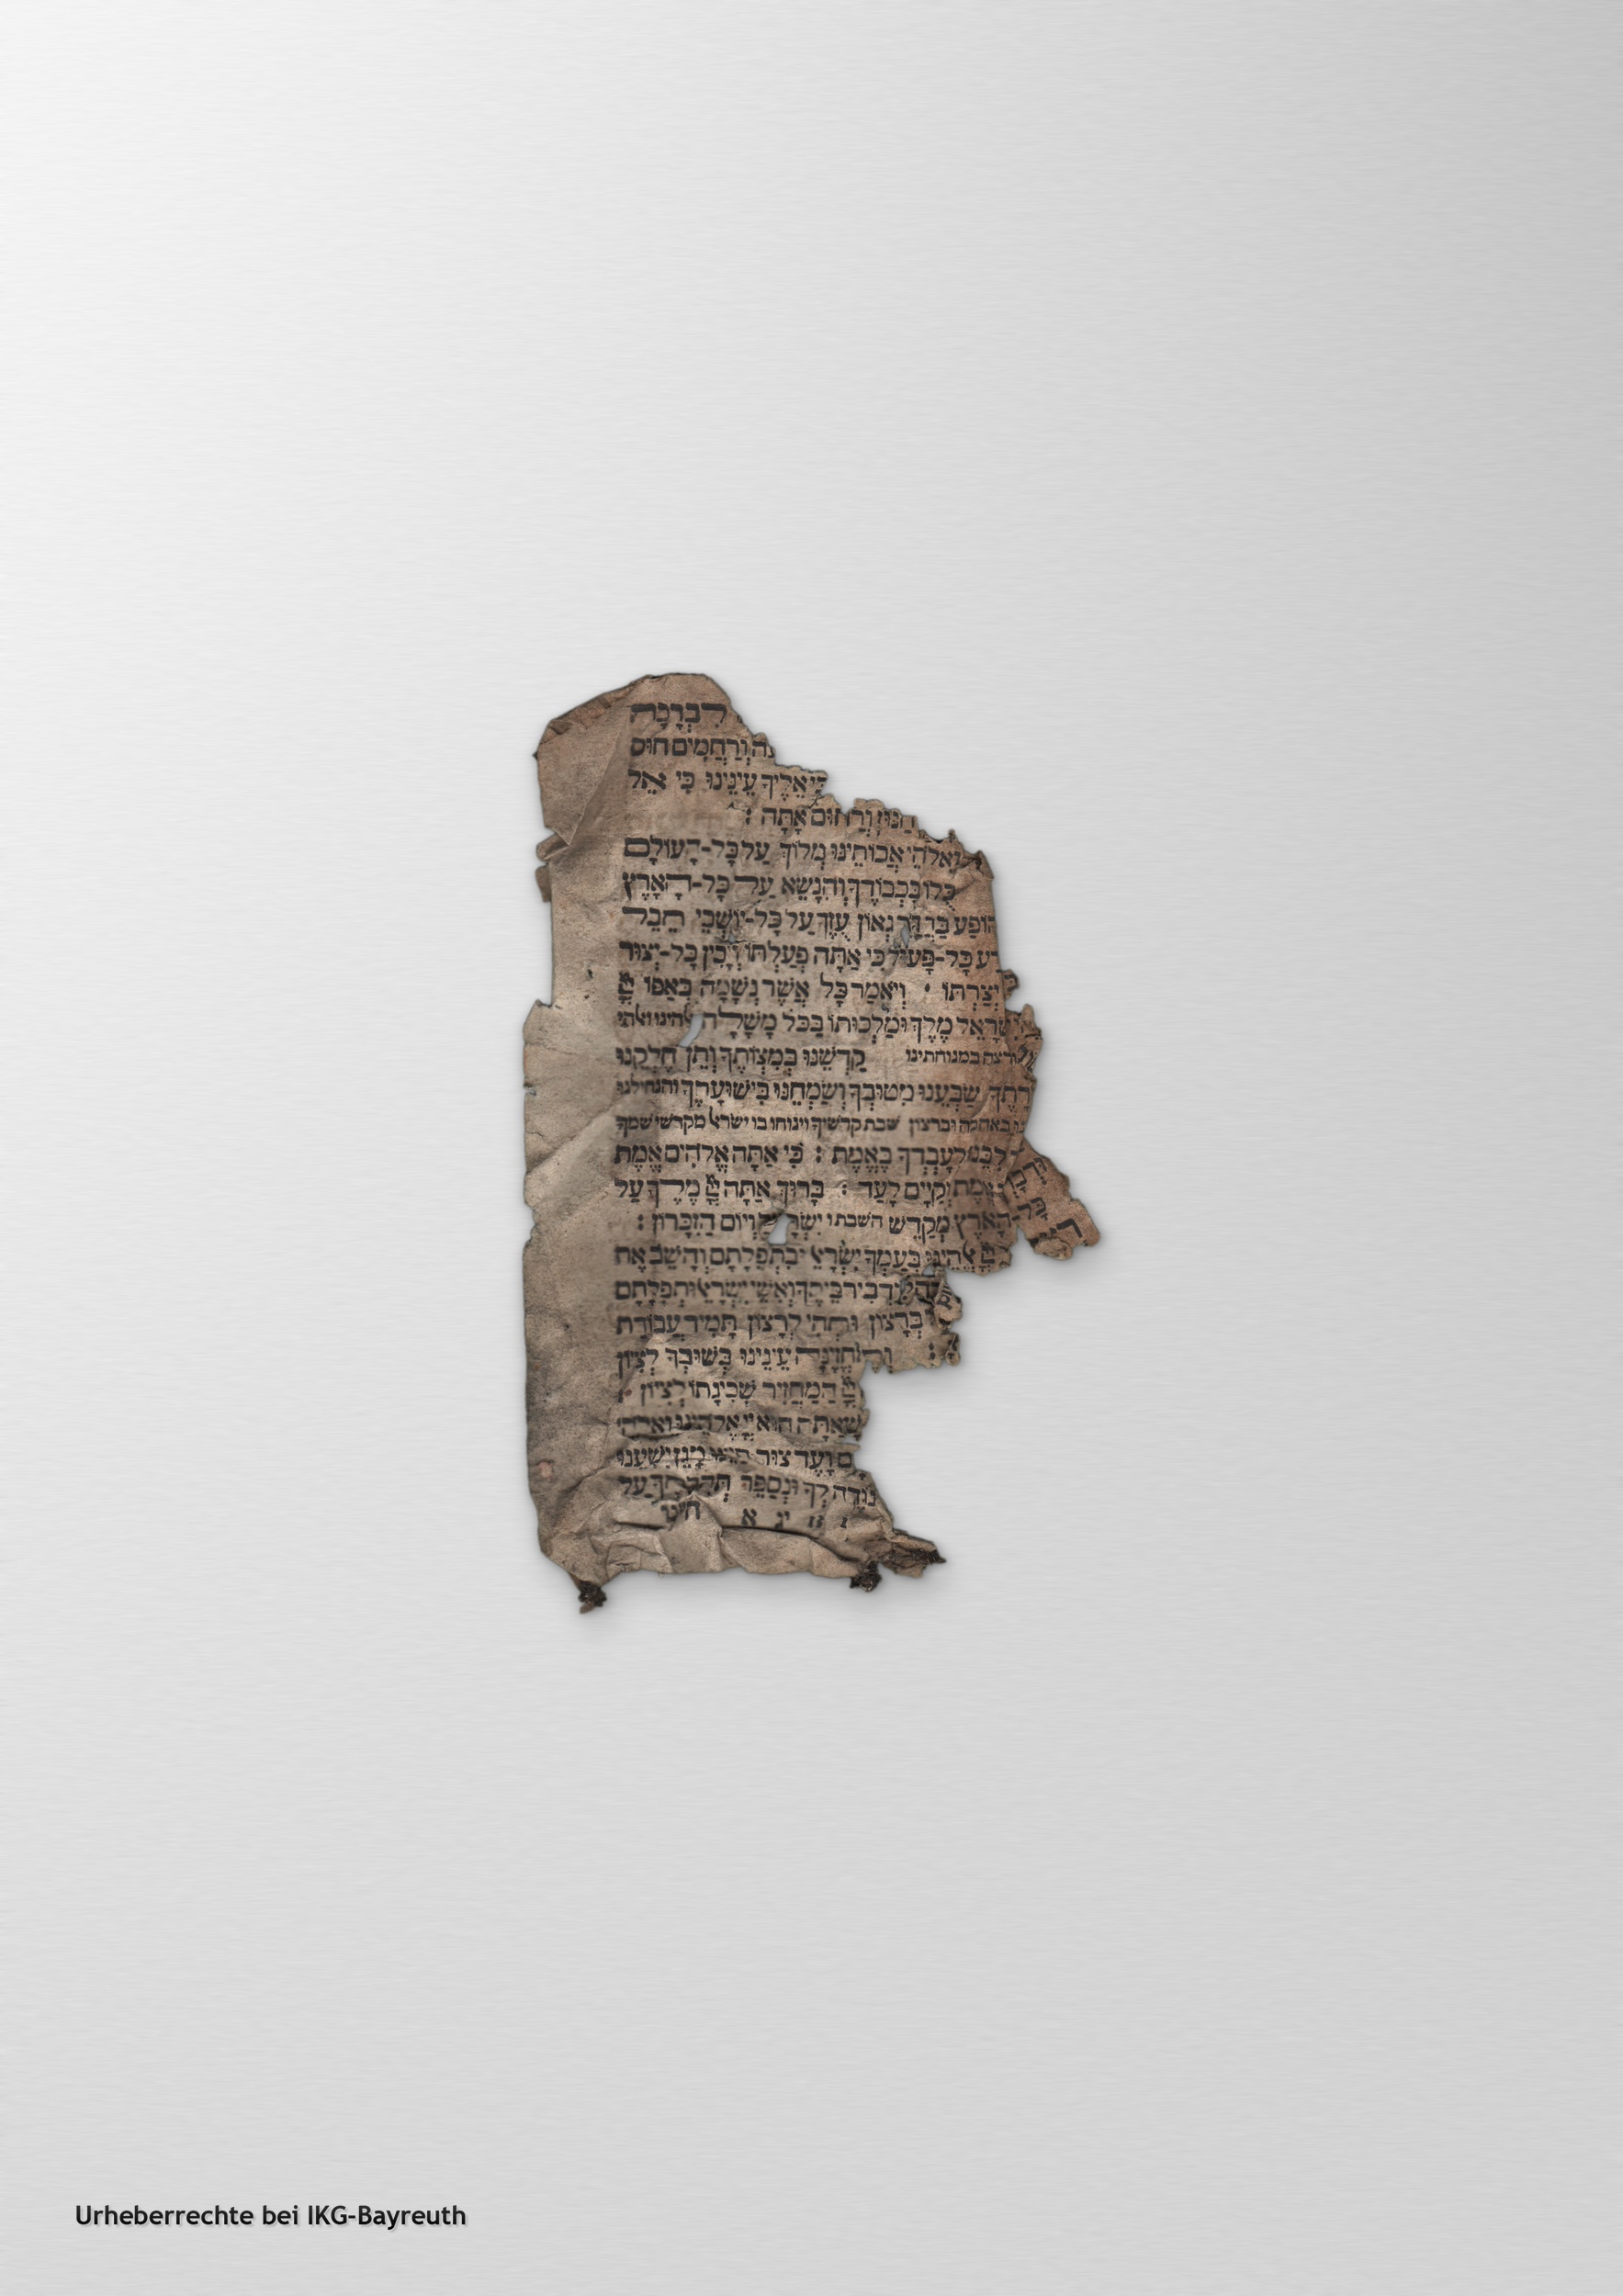 לִבְרָכָה
וְרַחֲמִים חוּס
אֵלֶיךָ עֵינֵינוּ כִּי אֵל
חַנּוּן וְרַחוּם אָתָּה :
וֵאלֹהֵי אֲבוֹתֵינוּ מְלוֹךְ עַל כָּל-הָעוֹלָם
כֻּלּוֹ בִּכְבוֹדֶךָ וְהִנָּשֵׂא עַל כָּל-הָאָרֶץ
הוֹפַע בַּהֲדַר גְּאוֹן עֻזֶּךָ עַל כָּל-יוֹשְׁבֵי תֵבֵל
כָּל-פָּעוּל כִּי אַתָּה פְעַלְתּוֹ וְיָבִין כָּל-יְצוּר
יְצַרְתּוֹ · וְיֹאמַר כָּל אֲשֶׁר נְשָׁמָה בְּאַפּוֹ
יִשְׂרָאֵל מֶלֶךְ וּמַלְכוּתוֹ בַּכֹּל מָשָׁלָה
רצה במנוחתינו קַדְּשֵׁנוּ בְּמִצְוֹתֶךָ וְתֵן חֶלְקֵנוּ
שַׂבְּעֵנוּ מִטּוּבֶךָ וְשַׂמְּחֵנוּ בִּישׁוּעָתֶךָ והנחילנו
באהבה וברצון שבת קדשיך וינוחו בו ישראל מקדשי שמך
לִבֵּנוּ לְעָבְדְּךָ בֶּאֱמֶת : כִּי אַתָּה אֱלֹהִים אֱמֶת
אֱמֶת וְקַיָּים לָעַד : בָּרוּךְ אַתָּה מֶלֶךְ עַל
הָאָרֶץ מְקַדֵּשׁ השבת ו יִשְׂרָאֵל וְיוֹם הַזִּכָּרוֹן :
בְּעַמְּךָ יִשְׂרָאֵל וּבִתְפִלָּתָם וְהָשֵׁב אֶת
לִדְבִיר בֵּיתֶךָ וְאִשֵּׁי יִשְׂרָאֵל וּתְפִלָּתָם
בְּרָצוֹן וּתְהִי לְרָצוֹן תָּמִיד עֲבוֹדַת
: וְתֶחֱזֶינָה עֵינֵינוּ בְּשׁוּבְךָ לְצִיּוֹן
הַמַּחֲזִיר שְׁכִינָתוֹ לְצִיּוֹן :
שָׁאַתָּה הוּא אֱלֹהֵינוּ וֵאלֹהֵי
וָעֶד צוּר מָגֵן יִשְׁעֵנוּ
נוֹדֶה לְּךָ וּנְסַפֵּר תְּהִלָּתֶךָ עַל
Urheberrechte bei IKG-Bayreuth